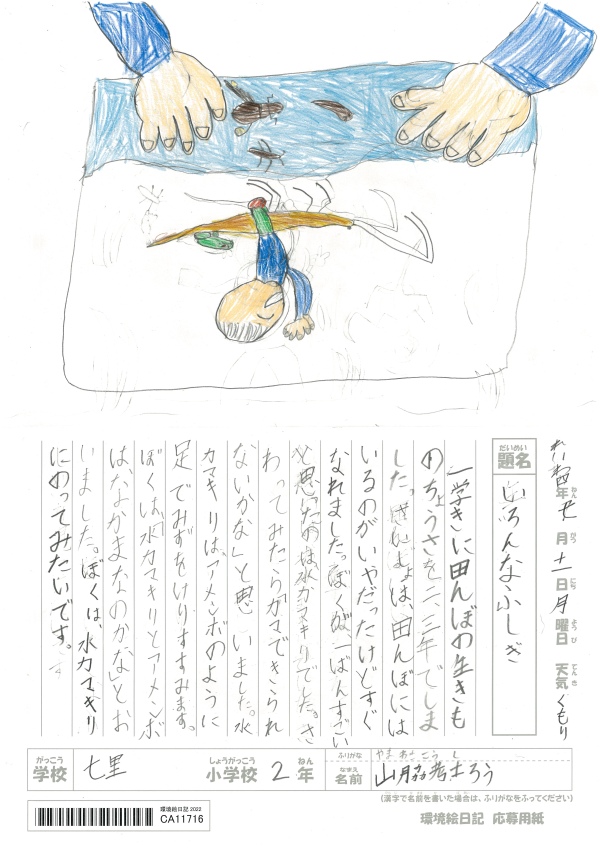 れい和四年 七月 十一日 月曜日 天気 くもり
ねん がつ にち ようび てんき
だいめい
題名
いろんなふしぎ
一学きに田んぼの生きも
のちょうさを二、三年でしま
した。さいしょは、田んぼには
いるのがいやだったけどすぐ
なれました。ぼくが一ばんすごい
と思ったのは水カマキリでした。さ
わってみたら「カマできられ
ないかな」と思いました。水
カマキリは、アメンボのように
足でみずをけりすすみます。
ぼくは、「水カマキリとアメンボ
は、なかまなのかな」とお
いました。ぼくは、水カマキリ
にのってみたいです。
がっこう
学校
七里
しょうがっこう
小学校
2
ねん
年
ふりがな
なまえ
名前
やま
山
ろう
(漢字で名前を書いた場合は、ふりがなをふってください)
環境絵日記 2022
CA11716
環境絵日記 応募用紙